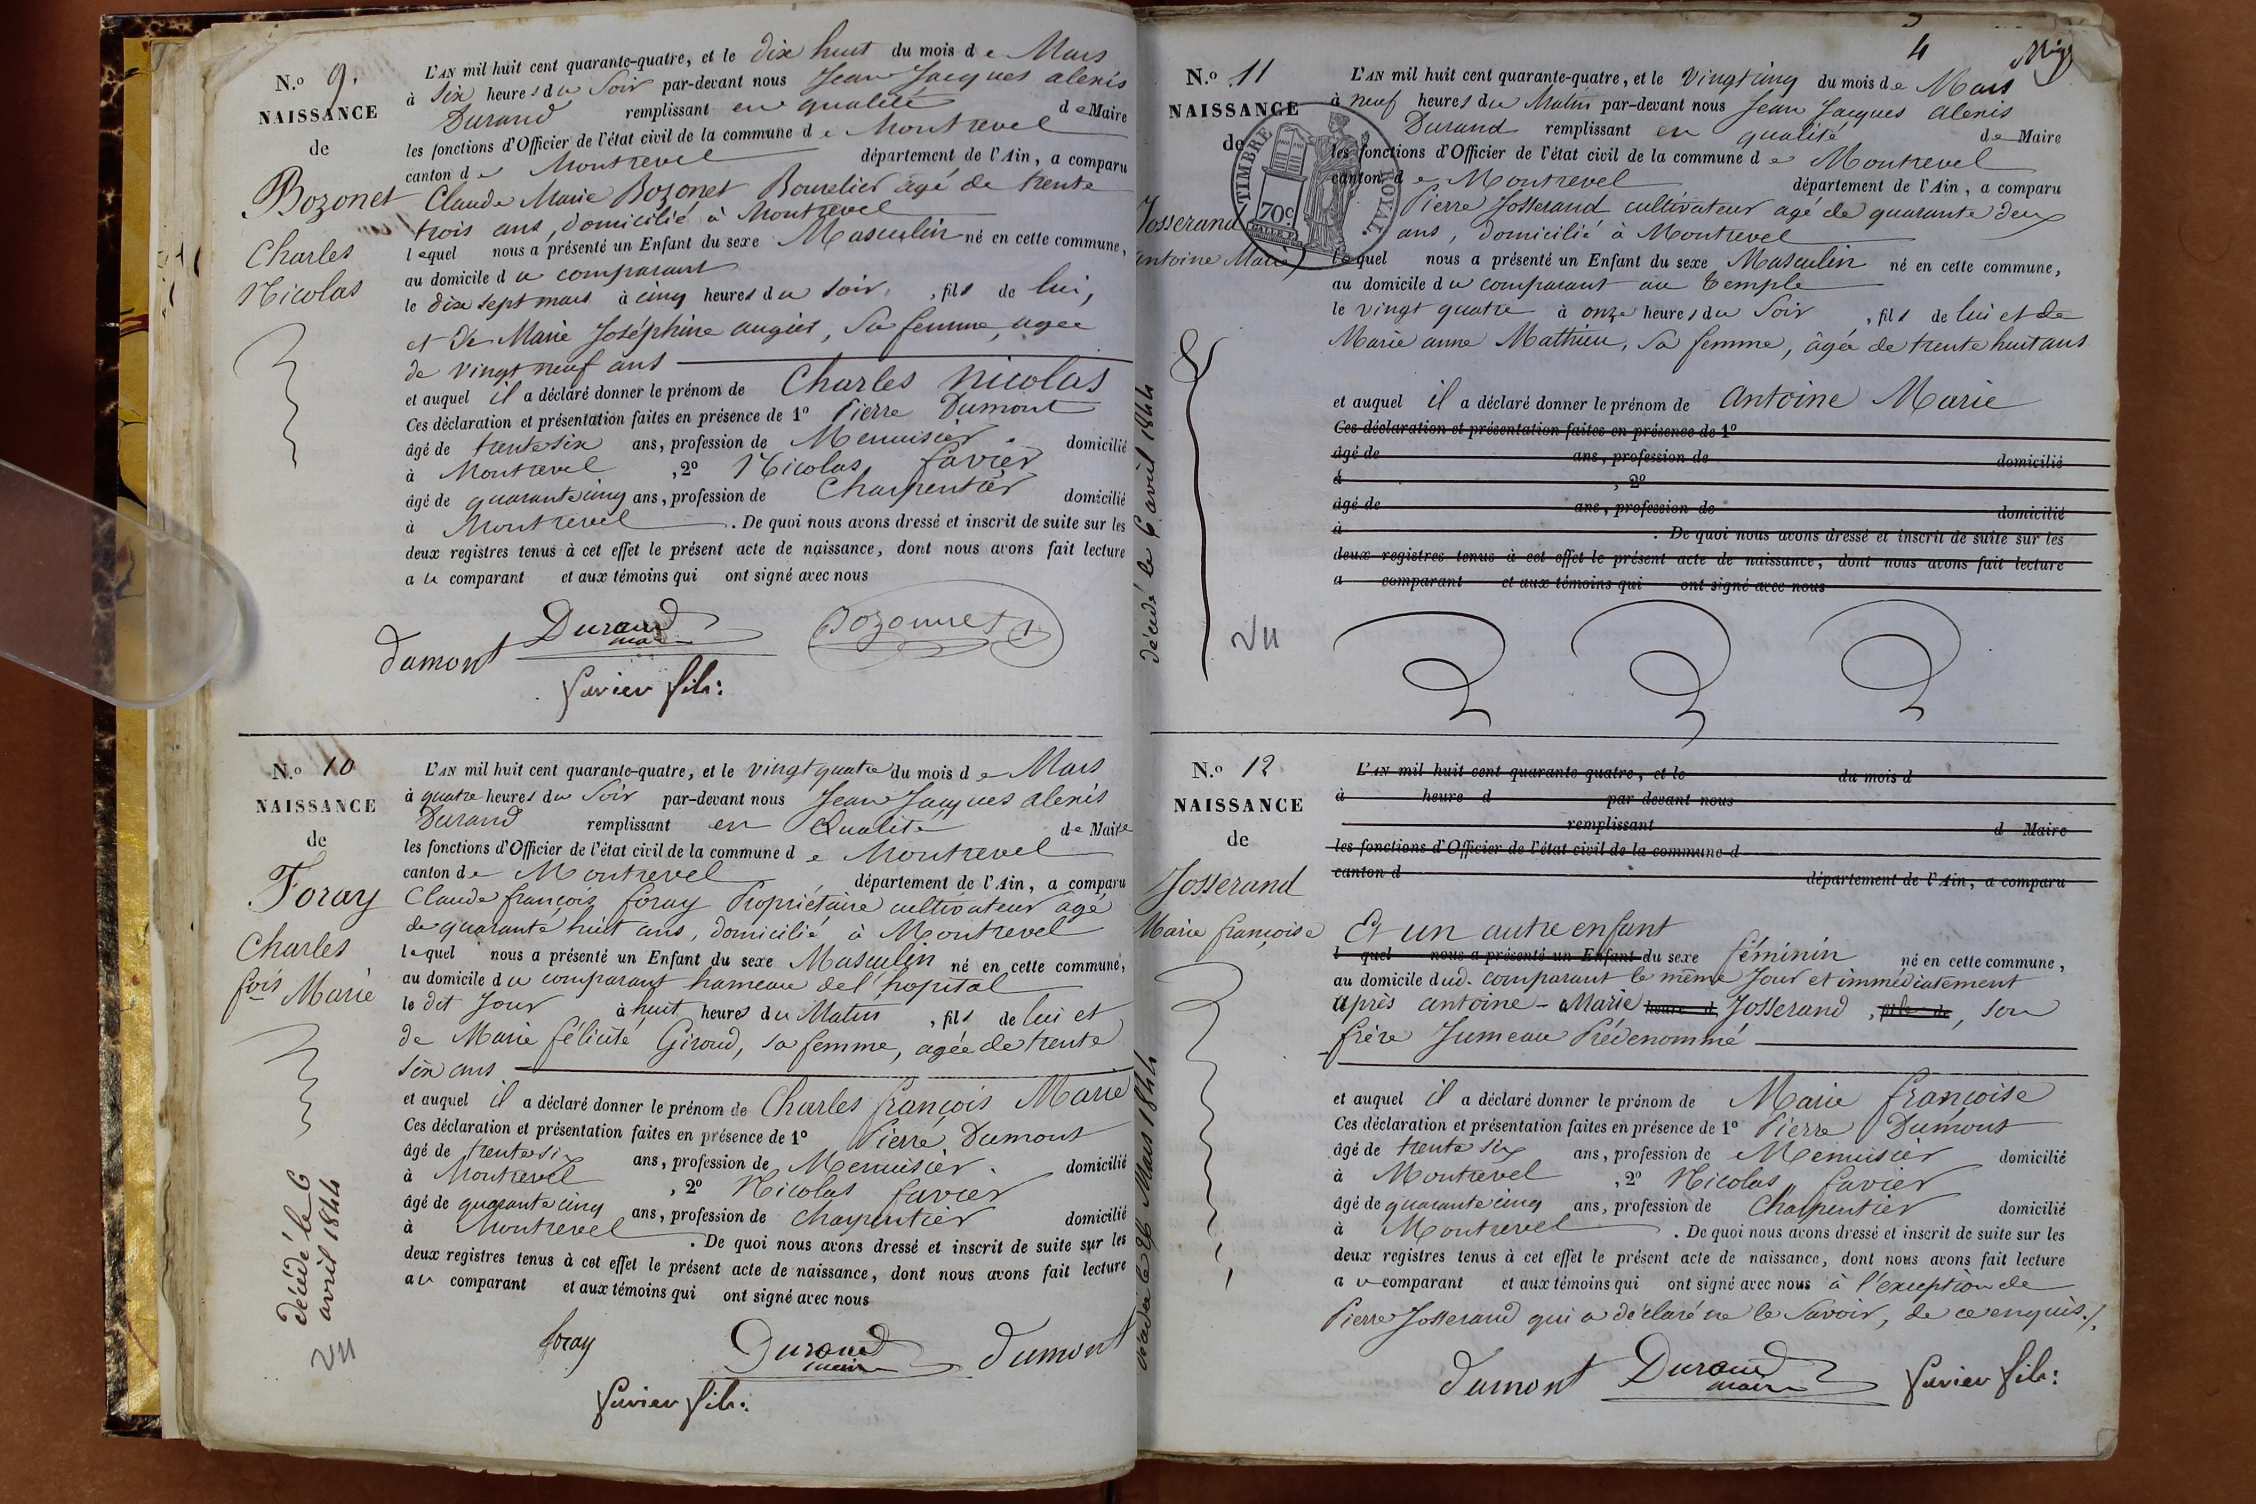 N.º 9.
NAISSANCE
de
Bozonet
Charles
Nicolas
L'AN mil huit cent quarante-quatre, et le dix huit du mois de Mars
à six heures du Soir par-devant nous Jean Jacques alexis
Durand remplissant en qualité de Maire
les fonctions d'Officier de l'état civil de la commune de Montrevel
canton de Montrevel département de l'Ain, a comparu
Claude Marie Bozonet Bourelier agé de trente
trois ans, domicilié à Montrevel
lequel nous a présenté un Enfant du sexe Masculin né en cette commune,
au domicile du comparant
le dix sept mars à cinq heures du soir, fils de lui,
et de Marie Joséphine augier, sa femme, agée
de vingt neuf ans
et auquel il a déclaré donner le prénom de Charles Nicolas
Ces déclaration et présentation faites en présence de 1º Pierre Dumont
âgé de trente six ans, profession de Menuisier domicilié
à Montrevel, 2º Nicolas favier
âgé de quarante cinq ans, profession de Charpentier domicilié
à Montrevel. De quoi nous avons dressé et inscrit de suite sur les
deux registres tenus à cet effet le présent acte de naissance, dont nous avons fait lecture
au comparant et aux témoins qui ont signé avec nous
Durand
maire
Bozonnet
dumont
favier fils:
N.º 10
NAISSANCE
de
Foray
Charles
fois Marie
décédé le 6
avril 1844
vu
L'AN mil huit cent quarante-quatre, et le vingt quatre du mois de Mars
à quatre heures du Soir par-devant nous Jean Jacques alexis
Durand remplissant en Qualité de Maire
les fonctions d'Officier de l'état civil de la commune de Montrevel
canton de Montrevel département de l'Ain, a comparu
Claude françois foray Propriétaire cultivateur agé
de quarante huit ans, domicilié à Montrevel
lequel nous a présenté un Enfant du sexe Masculin né en cette commune,
au domicile du comparant hameau del'hopital
le dit Jour à huit heures du Matin, fils de lui et
de Marie félicité Giroud, sa femme, agée de trente
six ans
et auquel il a déclaré donner le prénom de Charles françois Marie
Ces déclaration et présentation faites en présence de 1º Pierre Dumont
âgé de trente six ans, profession de Menuisier. domicilié
à Montrevel, 2º Nicolas favier
âgé de quarante cinq ans, profession de charpentier domicilié
à Montrevel. De quoi nous avons dressé et inscrit de suite sur les
deux registres tenus à cet effet le présent acte de naissance, dont nous avons fait lecture
au comparant et aux témoins qui ont signé avec nous
foray
Durand
maire
dumont
favier fils:
4
N.º 11
NAISSANCE
de
Josserand
antoine Marie
décédé le 6 avril 1844
vu
TIMBRE ROYAL
70c.
L'AN mil huit cent quarante-quatre, et le vingt cinq du mois de Mars
à neuf heures du Matin par-devant nous Jean Jacques alexis
Durand remplissant en qualité de Maire
les fonctions d'Officier de l'état civil de la commune de Montrevel
canton de Montrevel département de l'Ain, a comparu
Pierre Josserand cultivateur agé de quarante deux
ans, domicilié à Montrevel
lequel nous a présenté un Enfant du sexe Masculin né en cette commune,
au domicile du comparant au Temple
le vingt quatre à onze heures du Soir, fils de lui et de
Marie anne Mathieu, sa femme, âgée de trente huit ans
et auquel il a déclaré donner le prénom de antoine Marie
Ces déclaration et présentation faites en présence de 1º
âgé de ans, profession de domicilié
à , 2º
âgé de ans, profession de domicilié
à . De quoi nous avons dressé et inscrit de suite sur les
deux registres tenus à cet effet le présent acte de naissance, dont nous avons fait lecture
a comparant et aux témoins qui ont signé avec nous
N.º 12
NAISSANCE
de
Josserand
Marie françoise
décédée le 26 Mars 1844
L'AN mil huit cent quarante-quatre, et le du mois d
à heure d par-devant nous
remplissant d Maire
les fonctions d'Officier de l'état civil de la commune d
canton d département de l'Ain, a comparu
Et un autre enfant
l quel nous a présenté un Enfant du sexe féminin né en cette commune,
au domicile dud. comparant le même Jour et immédiatement
après antoine-Marie heure d Josserand, fils de, son
frère Jumeau Prédénommé
et auquel il a déclaré donner le prénom de Marie françoise
Ces déclaration et présentation faites en présence de 1º Pierre Dumont
âgé de trente six ans, profession de Menuisier domicilié
à Montrevel, 2º Nicolas favier
âgé de quarante cinq ans, profession de Charpentier domicilié
à Montrevel. De quoi nous avons dressé et inscrit de suite sur les
deux registres tenus à cet effet le présent acte de naissance, dont nous avons fait lecture
au comparant et aux témoins qui ont signé avec nous à l'exception de
Pierre Josserand qui a déclaré ne le Savoir, de ce enquis./.
dumont
Durand
maire
favier fils: